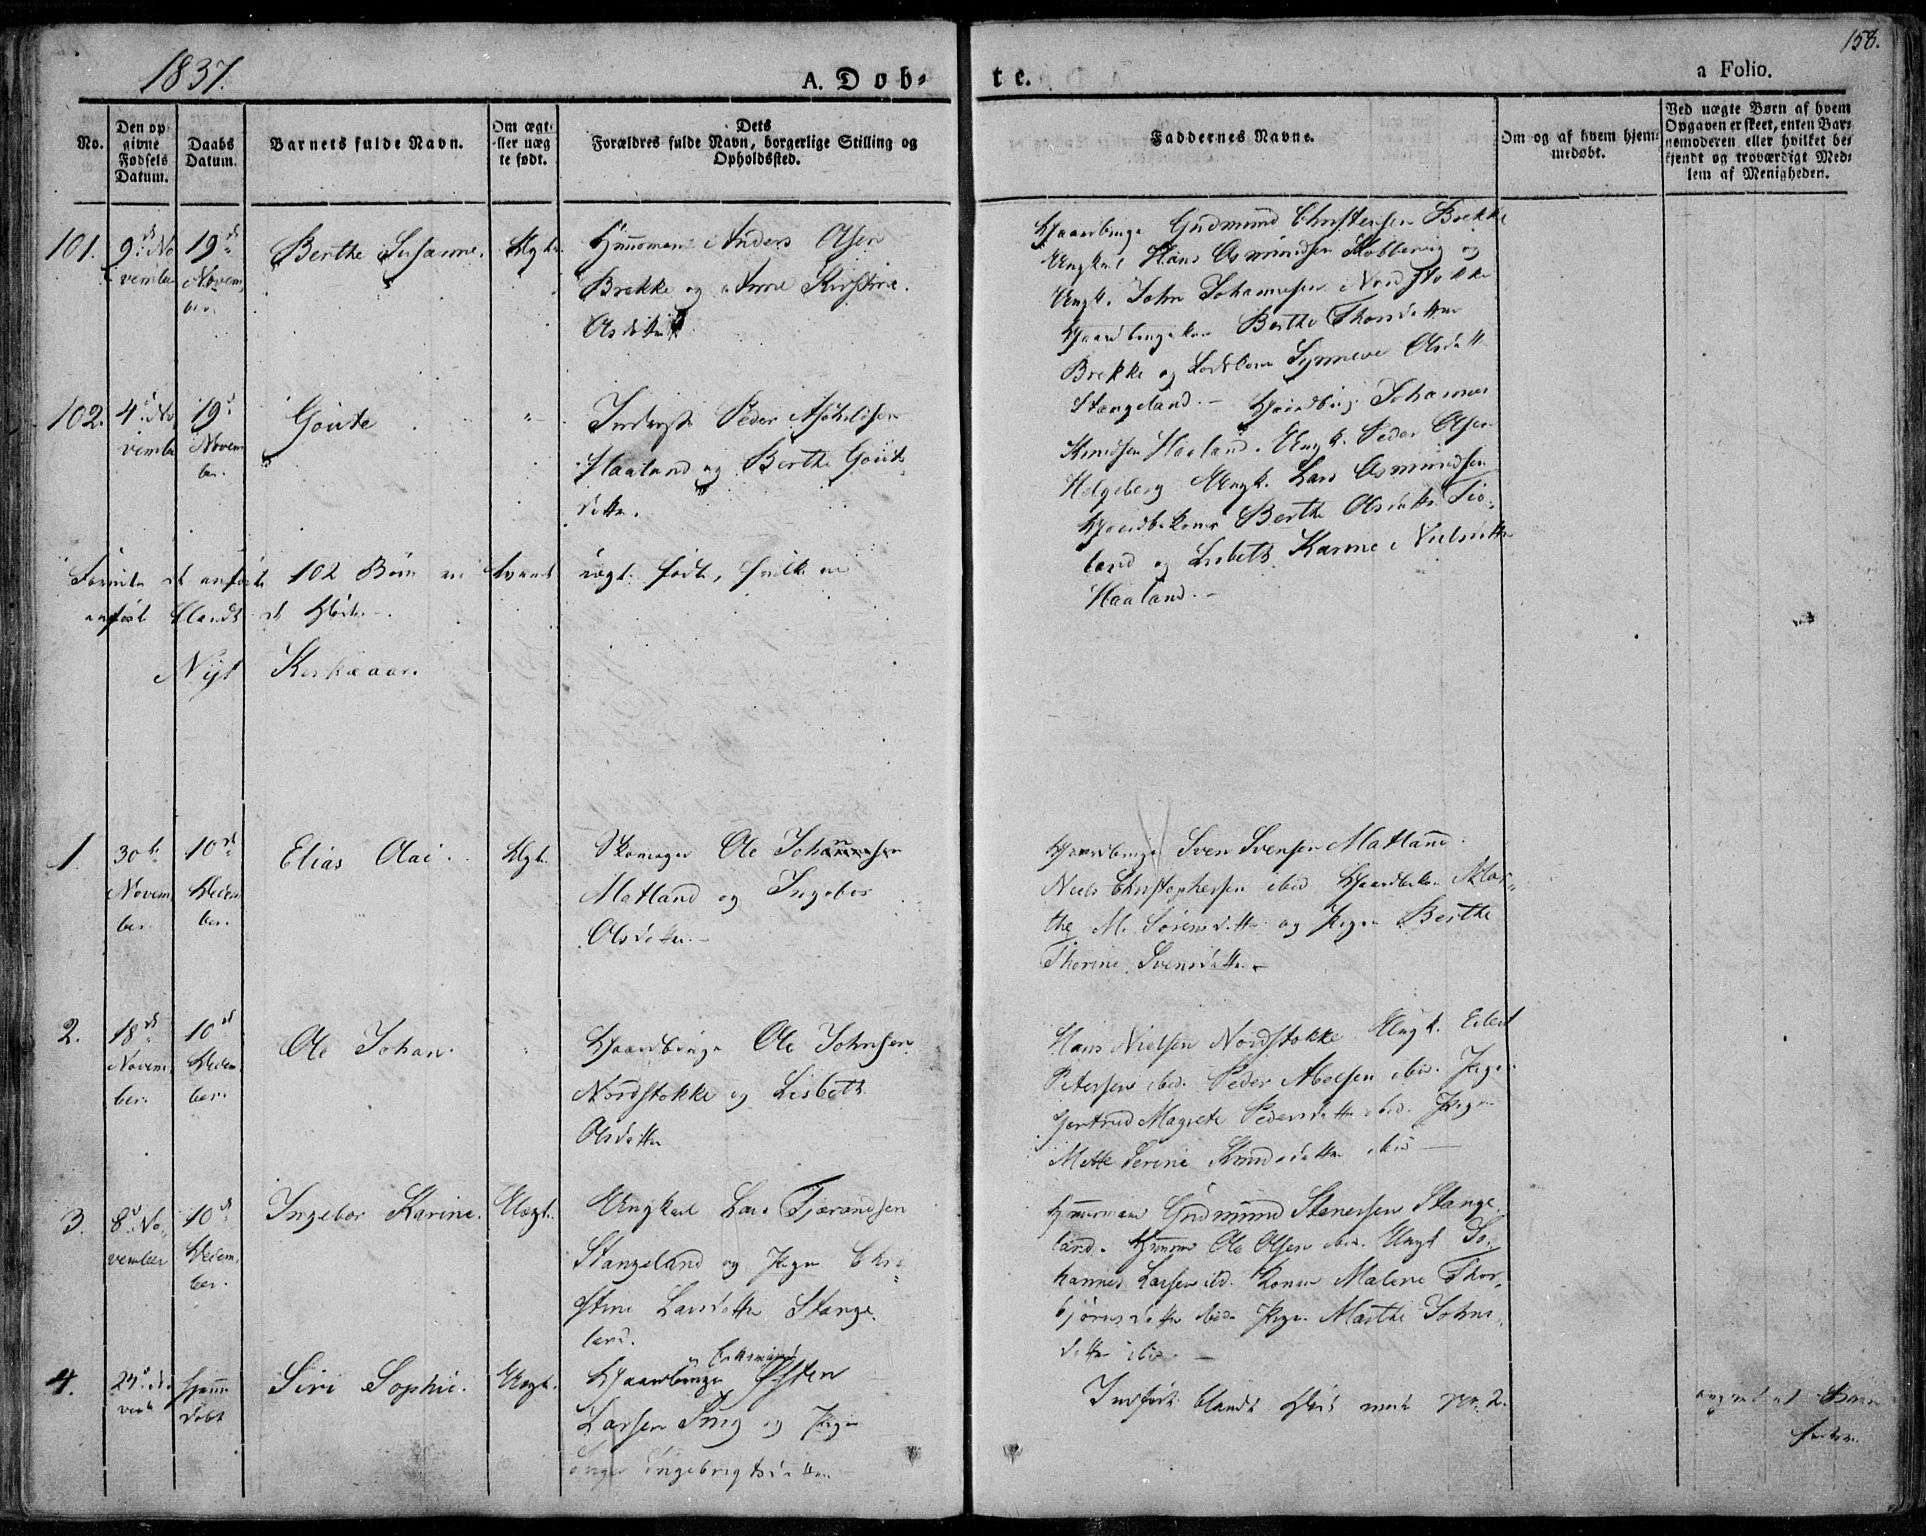 158.
1837.
A. Døb-
te.
a Folio.
No.
Den op-
givne
Fødsels
Datum.
Daabs
Datum.
Barnets fulde Navn.
Om ægt-
eller uæg
te født.
Dets
Forældres fulde Navn, borgerlige Stilling og
Opholdssted.
Faddernes Navne.
Om og af hvem hjem-
medøbt.
Ved uægte Børn af hvem
Opgaven er skeet, enten Bar-
nemoderen eller hvilket be-
kjendt og troværdigt Med-
lem af Menigheden.
101.
9d. No
vember
19d
Novem
ber.
Berthe Susanne.
Ægte
Huusmand Anders Olsen
Brekke og Anne Kirstine
Olsdatter
Gaardbruger Gudmund Christensen Brekke
Ungkarl Hans Osmundsen Kobbervig og
Ungk. John Johannesen Nordstokke
Gaardbrugerkone Berthe Thorsdatter
Brekke og Synneve Olsdatter
Stangeland. -
102.
4d. No
vember
19d.
Novem
ber.
Goute
"
Inderst Peder Aschildsen
Haaland og Berthe Goute
datter.
Gaardbrug. Johannes
Knudsen Haaland. Ungk. Peder Olsen
Helgeberg Ungk. Lars Osmundsen
Berthe Olsdatter Fio-
land og Lisbeth Karine Nielsdatter
Haaland. -
102 Børn
uægte fødte,
anført blandt de Døde.
Nyt Kirkeaar.
1
30te
Novem
ber.
10de
Decem
ber.
Elias Olai.
Ægt.
Skomager Ole Johannesen
Matland og Ingebor
Olsdatter. -
Gaardbruger Sven Svensen Matland.
Niels Christophersen ibid Mar-
the M. Sørensdatter og Pige Berthe
Thorine Svensdatter. -
2.
18de
Novem
ber.
10d
Decem
ber.
Ole Johan.
"
Gaardbruger Ole Johnsen
Nordstokke og Lisbeth
Olsdatter
Hans Nielsen Nordstokke. Ungk. Eilert
Petersen ibid. Peder Abelsen ibid. Pige
Gertrud Magrete Pedersdatter ibid. Pige
Mette Serine Knudsdatter ibid -
3.
8d. No
vember
10d
Decem
ber.
Ingebor Karine.
Uægt.
Ungkarl Lars Fjærandsen
Stangeland og Pige Chri
stine Larsdatter Stange
land.
Huusmand Gudmund Stenersen Stange
land. Ole Olsen ibid. Ungk Jo-
hannes Larsen ibid. Konen Malene Thor-
bjørnsdatter ibid. Pige Marthe Johns
datter ibid. -
4.
24d. No
vemb
hjemme
døbt
Siri Sophie.
Uægt.
Gaardbruger Østen
Larsen og Pige
Ingebrigtsdatter
Indført blandt Død med No. 2.